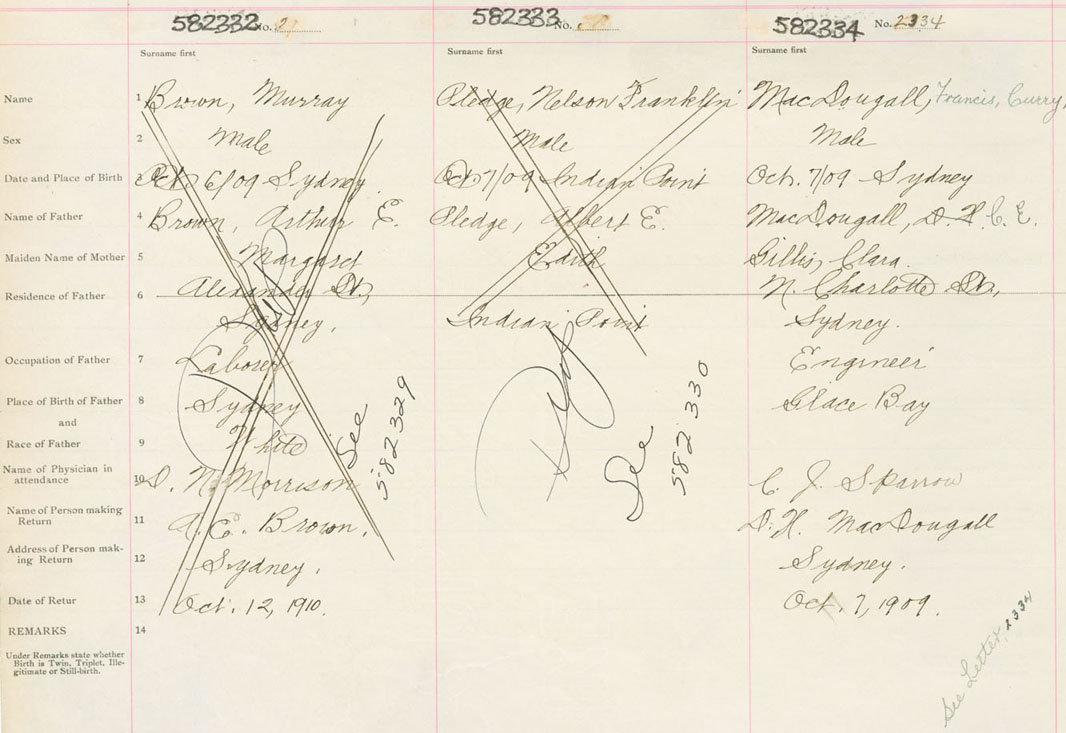 582332 No. 2
582333 No.
582334 No. 2334
Surname first
Surname first
Surname first
Name 1 Brown, Murray
Pledge, Nelson Franklin
MacDougall, Francis, Curry
Sex 2 Male
Male
Male
Date and Place of Birth 3 Oct. 6/09 Sydney.
Oct 7/09 Indian Point
Oct. 7/09 Sydney
Name of Father 4 Brown, Arthur E.
Pledge, Albert E.
MacDougall, D. H. C. E.
Maiden Name of Mother 5 Margaret
Edith
Gillis, Clara.
Residence of Father 6 Alexander St,
N. Charlotte St,
Sydney,
Indian Point
Sydney.
Occupation of Father 7 Laborer
Engineer
Place of Birth of Father 8 Sydney
Glace Bay
and
Race of Father 9 White
Name of Physician in
attendance 10 D. N. Morrison
C. J. Sparrow
Name of Person making
Return 11 A. E. Brown,
D. H. MacDougall
Address of Person mak-
ing Return 12 Sydney.
Sydney.
Date of Retur 13 Oct. 12, 1910.
Oct. 7, 1909.
REMARKS 14
Under Remarks state whether
Birth is Twin, Triplet, Ille-
gitimate or Still-birth.
See
582329
See
582330
See Letter, 2334